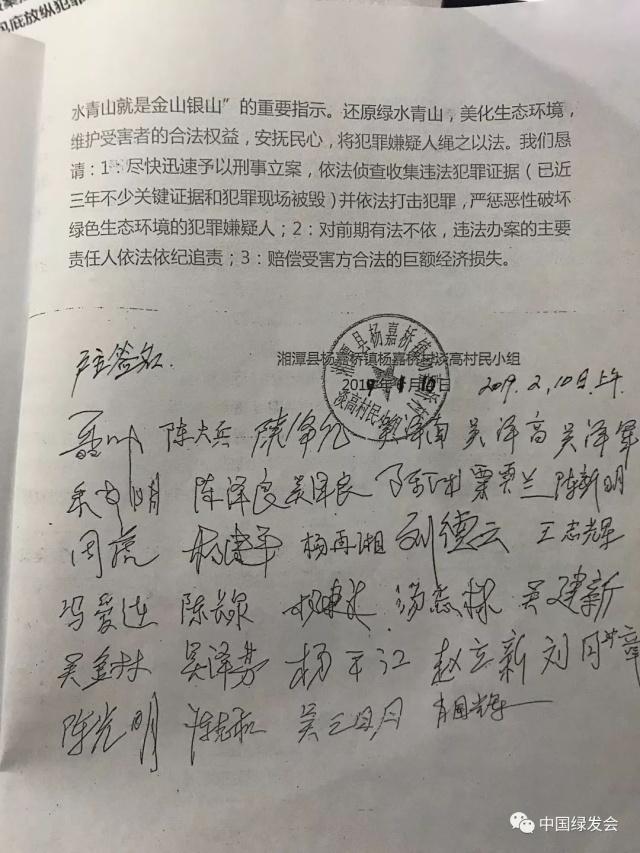 包庇放纵犯罪
水青山就是金山银山”的重要指示。还原绿水青山，美化生态环境，
维护受害者的合法权益，安抚民心，将犯罪嫌疑人绳之以法。我们恳
请：1：尽快迅速予以刑事立案，依法侦查收集违法犯罪证据（已近
三年不少关键证据和犯罪现场被毁）并依法打击犯罪，严惩恶性破坏
绿色生态环境的犯罪嫌疑人；2：对前期有法不依，违法办案的主要
责任人依法依纪追责；3：赔偿受害方合法的巨额经济损失。
户主签名
湘潭县杨嘉桥镇杨嘉桥村谈高村民小组
年 月10日 2019.2,10日上午
陈大兵 吴泽南 吴泽高 吴泽军
陈泽良 吴泽良 陈新明
周虎 杨建平 杨再湘 刘德云 王志辉
冯爱连 吴建新
吴金林 杨干江 赵立新
陈光明 肖国辉
中国绿发会